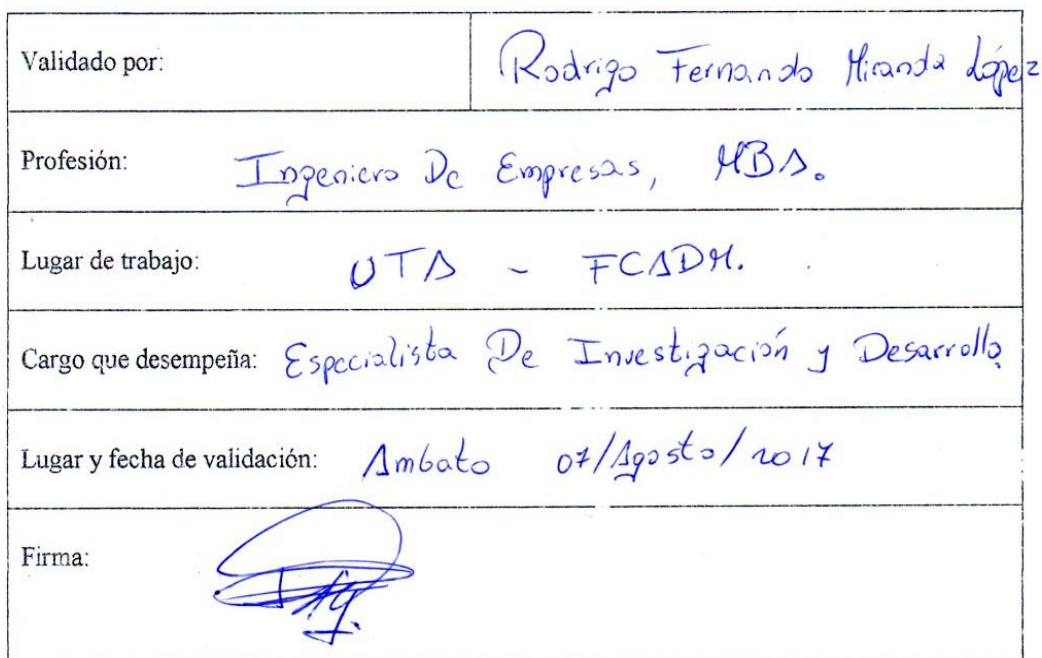 Validado por: Rodrigo Fernando Miranda López
Profesión: Ingeniero De Empresas, MBA.
Lugar de trabajo: UTA - FCADM.
Cargo que desempeña: Especialista De Investigación y Desarrollo
Lugar y fecha de validación: Ambato 07/Agosto/2017
Firma: